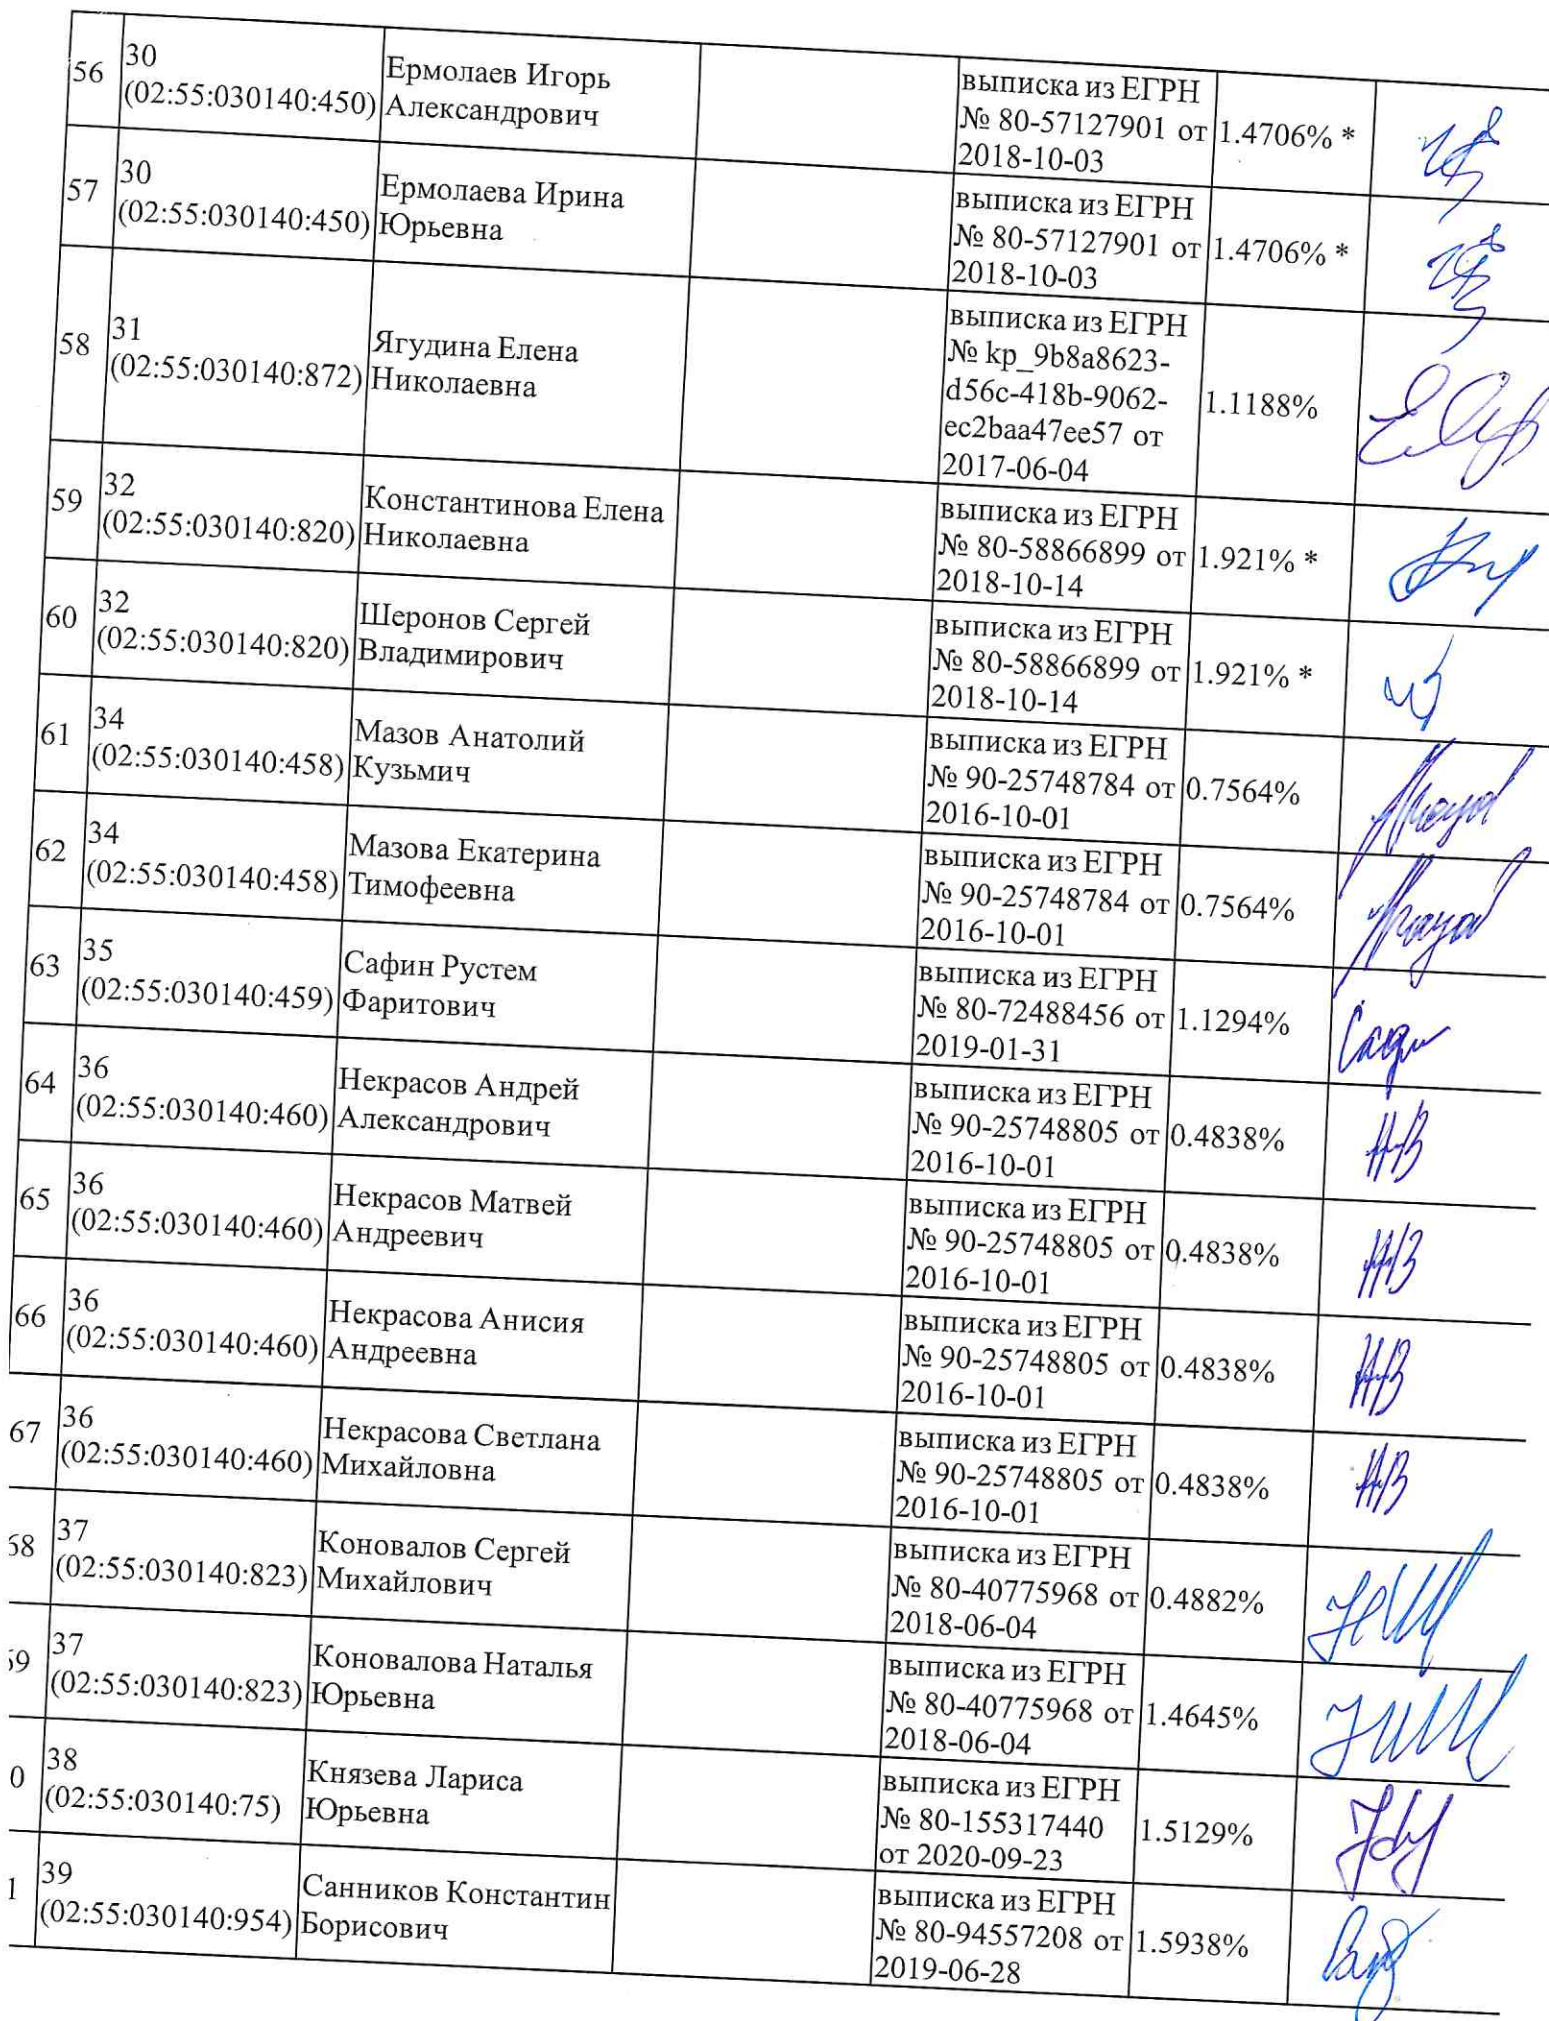 56
30
(02:55:030140:450)
Ермолаев Игорь
Александрович
выписка из ЕГРН
№ 80-57127901 от
2018-10-03
1.4706% *
57
30
(02:55:030140:450)
Ермолаева Ирина
Юрьевна
выписка из ЕГРН
№ 80-57127901 от
2018-10-03
1.4706% *
58
31
(02:55:030140:872)
Ягудина Елена
Николаевна
выписка из ЕГРН
№ kp_9b8a8623-
d56c-418b-9062-
ec2baa47ee57 от
2017-06-04
1.1188%
59
32
(02:55:030140:820)
Константинова Елена
Николаевна
выписка из ЕГРН
№ 80-58866899 от
2018-10-14
1.921% *
60
32
(02:55:030140:820)
Шеронов Сергей
Владимирович
выписка из ЕГРН
№ 80-58866899 от
2018-10-14
1.921% *
61
34
(02:55:030140:458)
Мазов Анатолий
Кузьмич
выписка из ЕГРН
№ 90-25748784 от
2016-10-01
0.7564%
62
34
(02:55:030140:458)
Мазова Екатерина
Тимофеевна
выписка из ЕГРН
№ 90-25748784 от
2016-10-01
0.7564%
63
35
(02:55:030140:459)
Сафин Рустем
Фаритович
выписка из ЕГРН
№ 80-72488456 от
2019-01-31
1.1294%
64
36
(02:55:030140:460)
Некрасов Андрей
Александрович
выписка из ЕГРН
№ 90-25748805 от
2016-10-01
0.4838%
65
36
(02:55:030140:460)
Некрасов Матвей
Андреевич
выписка из ЕГРН
№ 90-25748805 от
2016-10-01
0.4838%
66
36
(02:55:030140:460)
Некрасова Анисия
Андреевна
выписка из ЕГРН
№ 90-25748805 от
2016-10-01
0.4838%
67
36
(02:55:030140:460)
Некрасова Светлана
Михайловна
выписка из ЕГРН
№ 90-25748805 от
2016-10-01
0.4838%
68
37
(02:55:030140:823)
Коновалов Сергей
Михайлович
выписка из ЕГРН
№ 80-40775968 от
2018-06-04
0.4882%
9
37
(02:55:030140:823)
Коновалова Наталья
Юрьевна
выписка из ЕГРН
№ 80-40775968 от
2018-06-04
1.4645%
0
38
(02:55:030140:75)
Князева Лариса
Юрьевна
выписка из ЕГРН
№ 80-155317440
от 2020-09-23
1.5129%
1
39
(02:55:030140:954)
Санников Константин
Борисович
выписка из ЕГРН
№ 80-94557208 от
2019-06-28
1.5938%